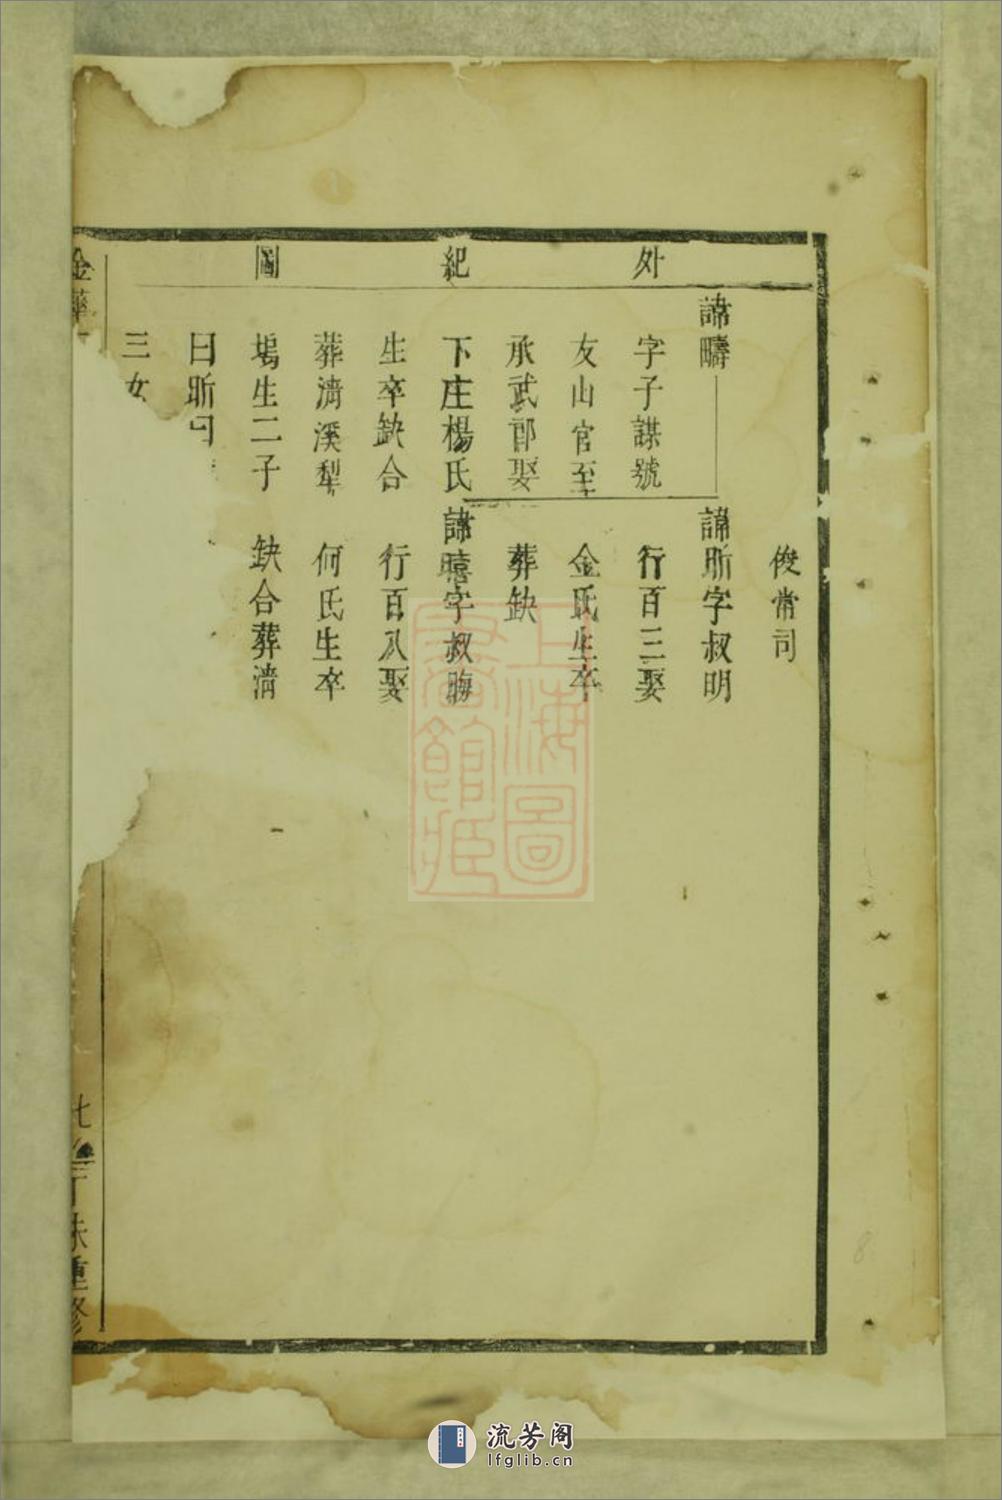 外紀圖
俊常司
諱疇
字子謀號
友山官至
承武郎娶
下庄楊氏
生卒缺合
葬濟溪犁
塢生二子
曰昕曰
三女
諱昕字叔明
行百三娶
金氏生卒
葬缺
諱暿字叔晦
行百八娶
何氏生卒
缺合葬濟
金華
丁
重修
上海圖書館藏
流芳阁
lfglib.cn